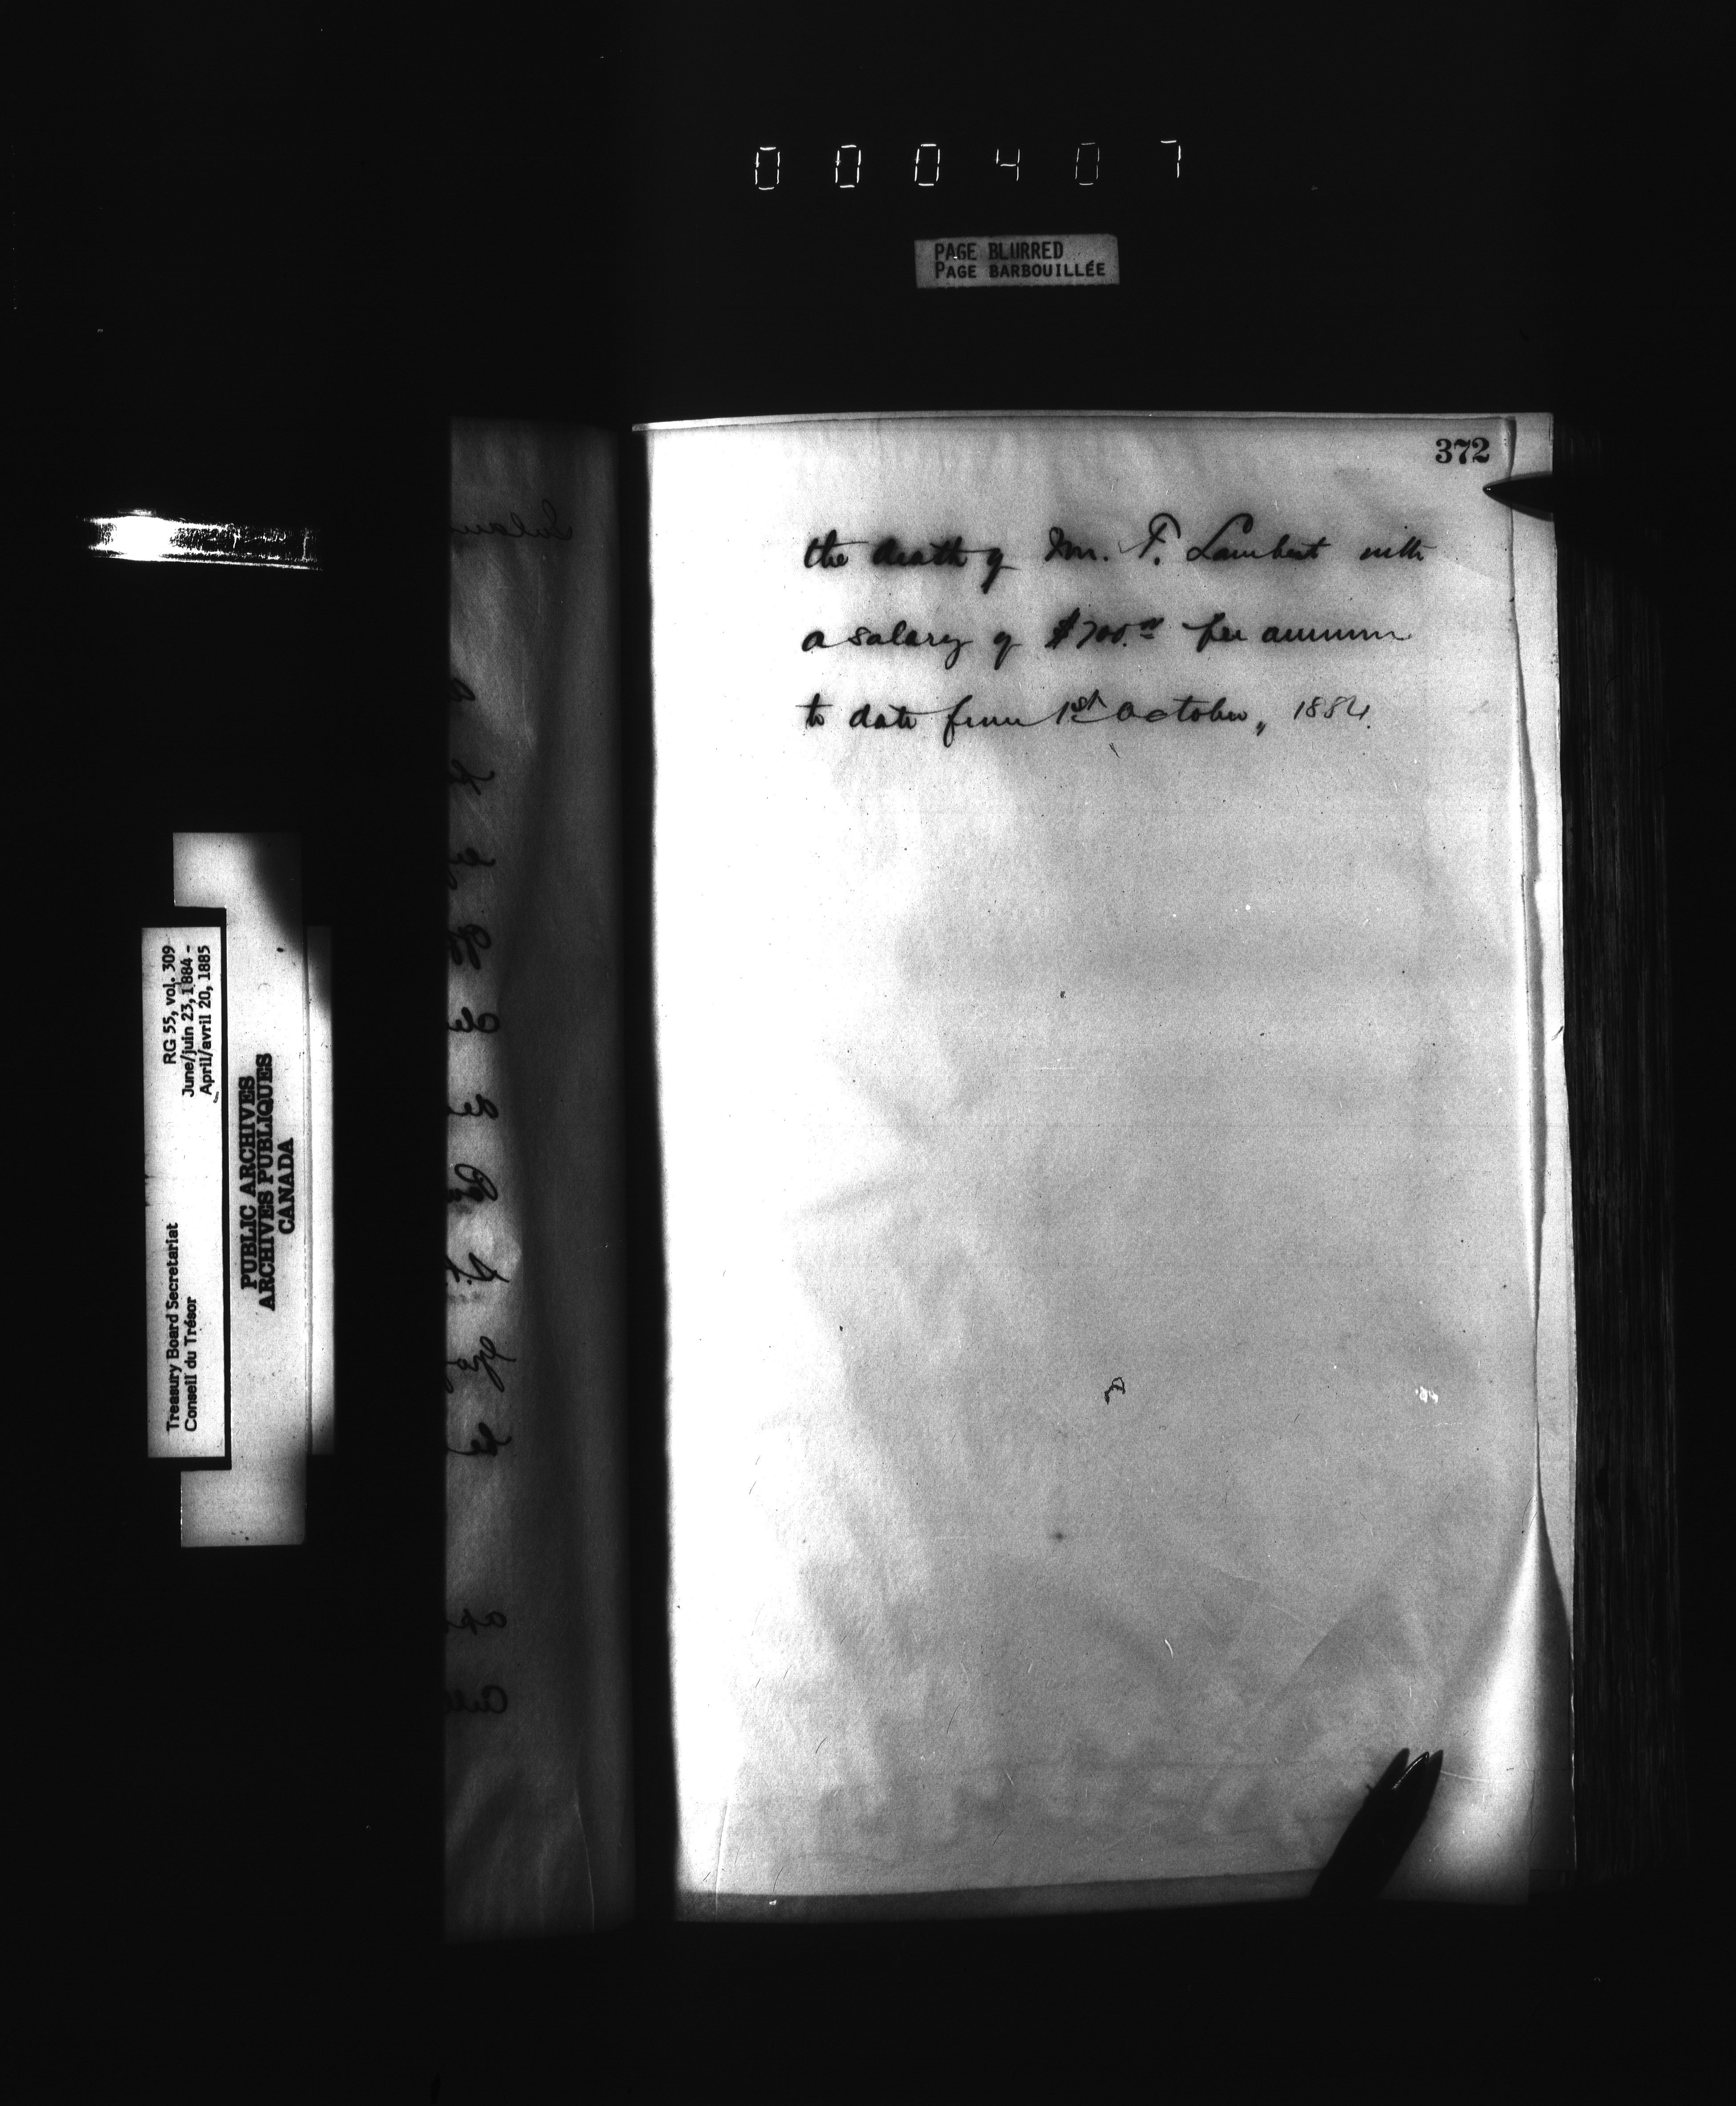 000407
PAGE BLURRED
PAGE BARBOUILLÉE
372
the death of Mr. T. Lambert with
a salary of $700.00 per annum
to date from 1st October, 1884.
RG 55, vol. 309
June/juin 23, 1884 -
April/avril 20, 1885
Treasury Board Secretariat
Conseil du Trésor
PUBLIC ARCHIVES
ARCHIVES PUBLIQUES
CANADA